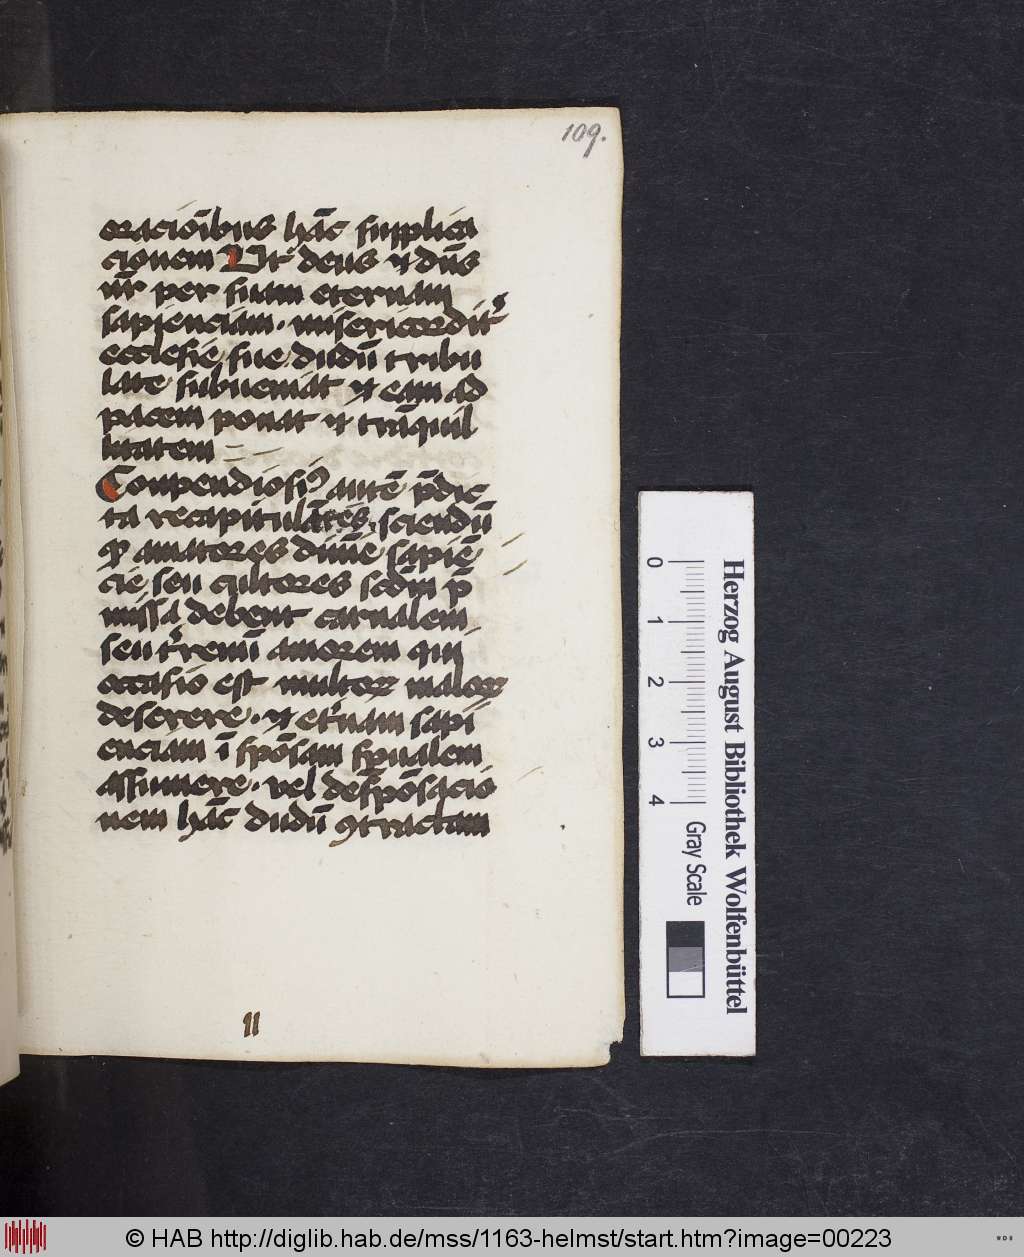 109.
oracioībus hāc supplica
cionem Ut deus ⁊ dūs
nr̄ per suam eternam
sapienciam . misericordit᷒
ecclesie sue dudū tribu
late subueniat ⁊ eam ad
pacem ponat ⁊ trāquil
litatem
Conpendiosiꝰ autē p̄dic
ta recapitulātes sciendū
ꝙ amatores diuīe sapiē
cie seu cultores scdm̄ p̄
missa debent carnalem
seu tr̄renū amorem qui
occasio est multoꝝ maloꝝ
deserere . ⁊ et̄nam sapi
enciam ī spōsam spūalem
assumere . vel despōsacio
nem hāc dudū ꝯtractam
11
Herzog August Bibliothek Wolfenbüttel
0 1 2 3 4
Gray Scale
© HAB http://diglib.hab.de/mss/1163-helmst/start.htm?image=00223